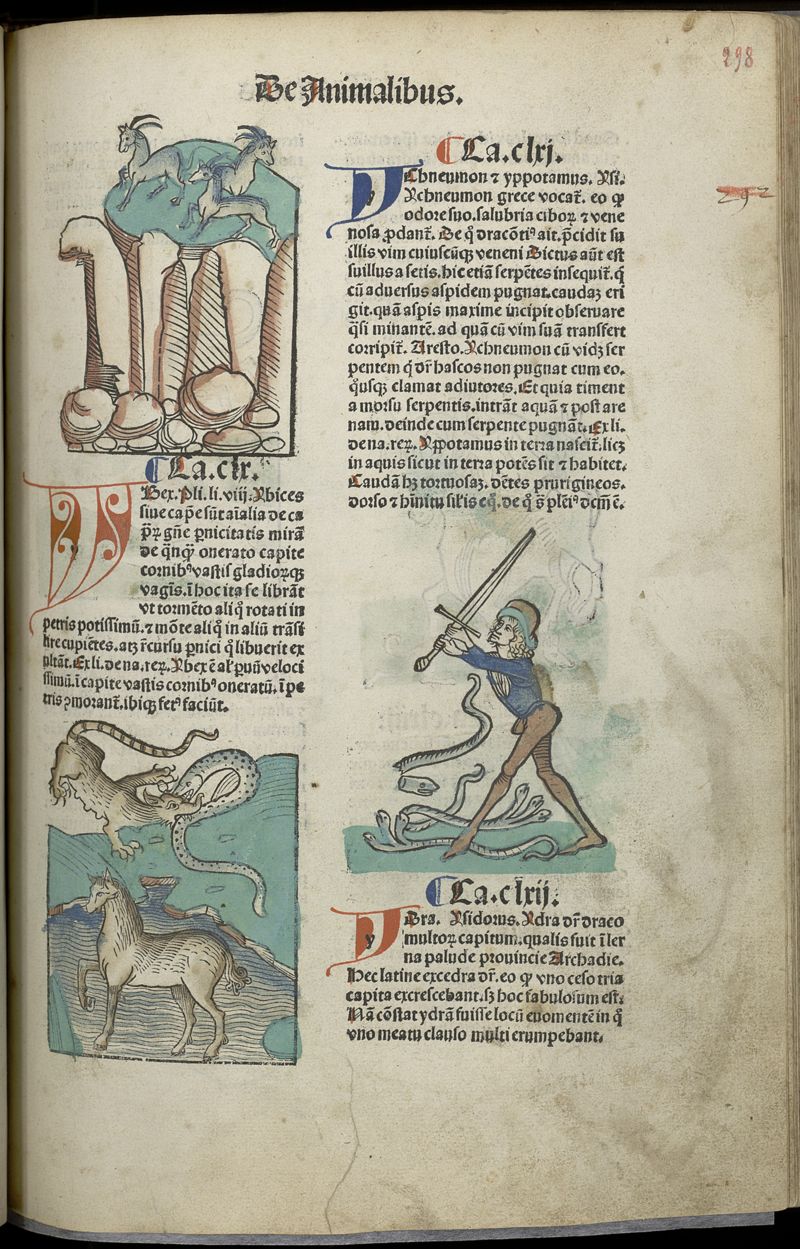 298
De Animalibus.
Ca.clx.
Ybex. Pli. li. viij. Ybices
siue cap̄e sūt aīalia de ca
p̄ꝝ gn̄e ꝑnicitatis mirā
de ꝙ̄ꝙ̄ onerato capite
cornibꝰ vastis gladioꝝqꝫ
vagīs. ī hoc ita se librāt
vt tormēto aliq̊ rotati in
petris potissimū. ⁊ mōte aliq̊ in aliū trāsi
lire cupiētes. atqꝫ r̄cursu ꝑnici q̊ libuerit ex
ultāt. Ex li. de na. reꝝ. Ybex ē al̓ puū veloci
ssimū. ī capite vastis cornibꝰ oneratū. ī pe
tris ꝯmorant̄. ibiqꝫ fetꝰ faciūt.
Ca.clxj.
Ychneumon ⁊ yppotamus. Ysi.
Ychneumon grece vocat̄. eo ꝙ
odore suo. salubria ciboꝝ ⁊ vene
nosa ꝓdant̄. De q̊ dracōtiꝰ ait. p̄cidit su
illis vim cuiuscūqꝫ veneni Dictus aūt est
suillus a setis. hic etiā serpētes insequit̄. q̊
cū aduersus aspidem pugnat. caudaꝫ eri
git. quā aspis maxime incipit obseruare
q̄si minantē. ad quā cū vim suā transfert
corripit̄. Aresto. Ychneumon cū vidꝫ ser
pentem q̊ dr̄ hascos non pugnat cum eo.
q̊usqꝫ clamat adiutores. Et quia timent
a morsu serpentis. intrāt aquā ⁊ post are
nam. deinde cum serpente pugnāt. Ex li.
de na. reꝝ. Yppotamus in terra nascit̄. licꝫ
in aquis sicut in terra potēs sit ⁊ habitet.
Caudā hꝫ tortuosaꝫ. dētes prurigineos.
dorso ⁊ hīnitu sil̓is eq̊. de q̊ s̄ plēiꝰ dcm̄ ē.
Ca.clxij.
Ydra. Ysidorus. Ydra dr̄ draco
multoꝝ capitum. qualis fuit ī ler
na palude prouincie Archadie.
Hec latine excedra dr̄. eo ꝙ vno ceso tria
capita excrescebant. sꝫ hoc fabulosum est.
Nā cōstat ydrā fuisse locū euomentē in q̊
vno meatu clauso multi erumpebant.